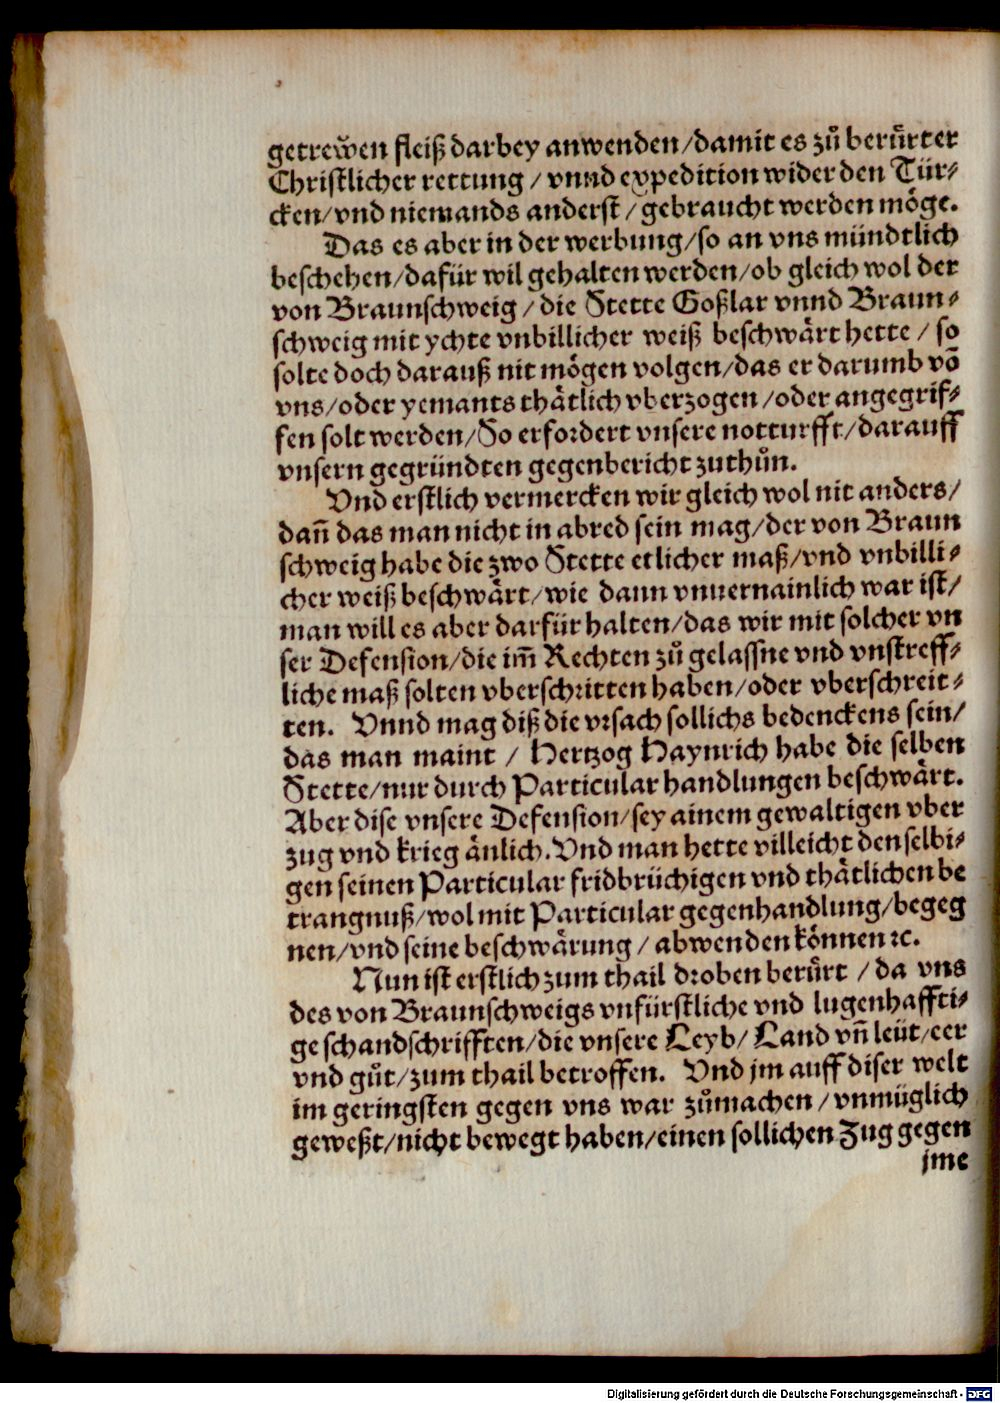 getrew̌en fleiß darbey anwenden/damit es zů berůrter
Christlicher rettung / vnnd expedition wider den Tür⸗
cken/vnd niemands anderst / gebraucht werden möge.
Das es aber in der werbung/so an vns mündtlich
beschehen/dafür wil gehalten werden/ob gleich wol der
von Braunschweig / die Stette Goßlar vnnd Braun⸗
schweig mit ychte vnbillicher weiß beschwärt hette / so
solte doch darauß nit mögen volgen/das er darumb vō
vns/oder yemants thätlich vberzogen/oder angegrif⸗
fen solt werden/So erfordert vnsere notturfft/darauff
vnsern gegründten gegenbericht zuthůn.
Vnd erstlich vermercken wir gleich wol nit anders/
dañ das man nicht in abred sein mag/der von Braun
schweig habe die zwo Stette etlicher maß/vnd vnbilli⸗
cher weiß beschwärt/wie dann vnuernainlich war ist/
man will es aber darfür halten/das wir mit solcher vn
ser Defension/die im̄ Rechten zů gelassne vnd vnstreff⸗
liche maß solten vberschritten haben/oder vberschreit⸗
ten. Vnnd mag diß die vrsach sollichs bedenckens sein/
das man maint / Hertzog Haynrich habe die selben
Stette/nur durch Particular handlungen beschwärt.
Aber dise vnsere Defension/sey ainem gewaltigen vber
zug vnd krieg änlich.Vnd man hette villeicht denselbi⸗
gen seinen Particular fridbrüchigen vnd thätlichen be
trangnuß/wol mit Particular gegenhandlung/begeg
nen/vnd seine beschwärung / abwenden können ꝛc.
Nun ist erstlich zum thail droben berůrt / da vns
des von Braunschweigs vnfürstliche vnd lugenhaffti⸗
ge schandschrifften/die vnsere Leyb/ Land vñ leüt/eer
vnd gůt/zum thail betroffen. Vnd jm auff diser welt
im geringsten gegen vns war zůmachen / vnmüglich
geweßt/nicht bewegt haben/einen sollichen Zug gegen
jme
Digitalisierung gefördert durch die Deutsche Forschungsgemeinschaft - DFG